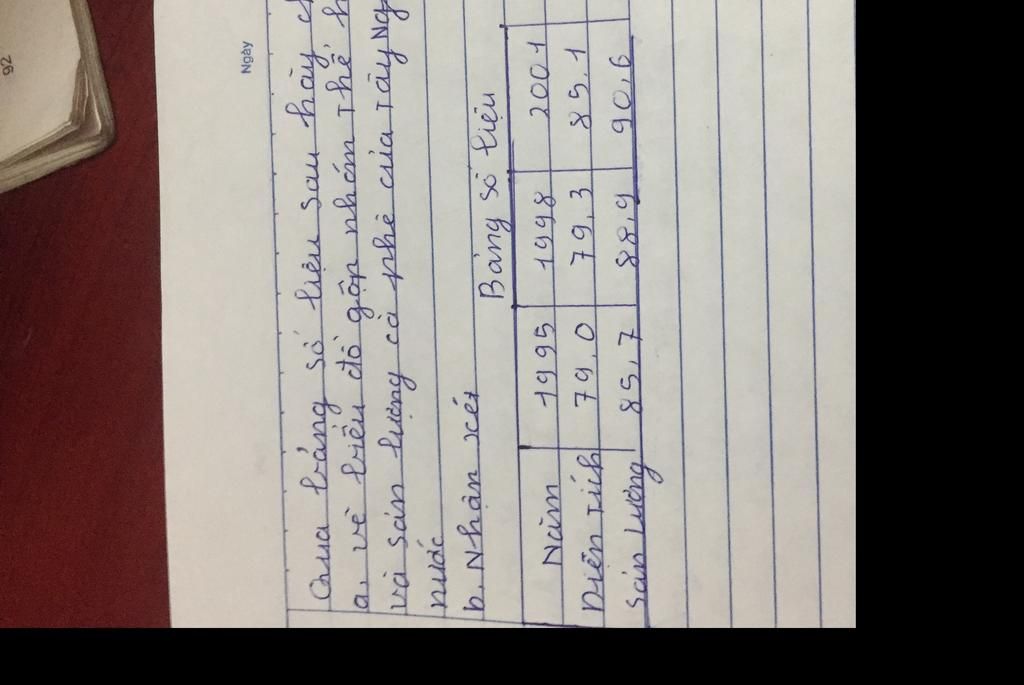 92
Ngày
Qua bảng số liệu sau hãy
a. vẽ biểu đồ gộp nhóm thể
và sản lượng cà phê của Tây
nước
b. Nhận xét
Bảng số liệu
Năm 1995 1998 2001
Diện Tích 79,0 79,3 85,1
Sản Lượng 85,7 88,9 90,6